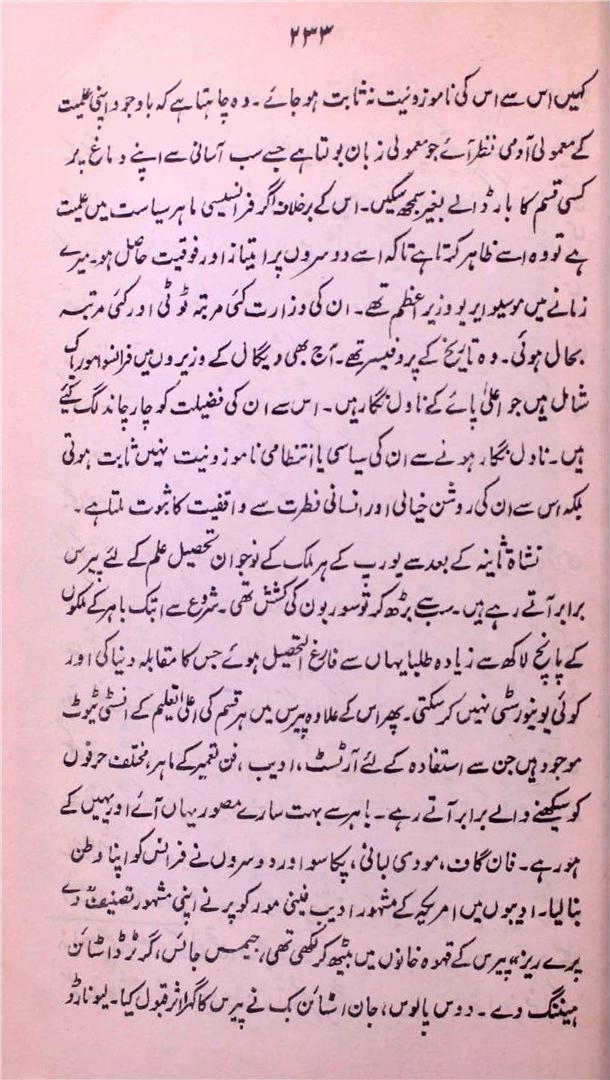 ۲۳۳
کہیں اس سے اس کی ناموزونیت نہ ثابت ہو جائے۔ وہ چاہتا ہے کہ باوجود اپنی علمیت
کے معمولی آدمی نظر آئے جو معمولی زبان بولتا ہے جسے سب آسانی سے اپنے دماغ پر
کسی قسم کا بار ڈالے بغیر سمجھ سکیں۔ اس کے برخلاف اگر فرانسیسی ماہر سیاست میں علمیت
ہے تو وہ اسے ظاہر کرتا ہے تاکہ اسے دوسروں پر امتیاز اور فوقیت حاصل ہو۔ میرے
زمانے میں موسیو ایریو وزیر اعظم تھے۔ ان کی وزارت کئی مرتبہ ٹوٹی اور کئی مرتبہ
بحال ہوئی۔ وہ تاریخ کے پروفیسر تھے۔ آج بھی دیگال کے وزیروں میں فرانسوا موریاک
شامل ہیں جو اعلیٰ پائے کے ناول نگار ہیں۔ اس سے ان کی فضیلت کو چار چاند لگ گئے
ہیں۔ ناول نگار ہونے سے ان کی سیاسی یا انتظامی ناموزونیت نہیں ثابت ہوتی
بلکہ اس سے ان کی روشن خیالی اور انسانی فطرت سے واقفیت کا ثبوت ملتا ہے۔
نشاۃ ثانیہ کے بعد سے یورپ کے ہر ملک کے نوجوان تحصیل علم کے لئے پیرس
برابر آتے رہے ہیں۔ سب سے بڑھ کر تو سوربون کی کشش تھی۔ شروع سے ابتک باہر کے ملکوں
کے پانچ لاکھ سے زیادہ طلبا یہاں سے فارغ التحصیل ہوئے جس کا مقابلہ دنیا کی اور
کوئی یونیورسٹی نہیں کر سکتی۔ پھر اس کے علاوہ پیرس میں ہر قسم کی اعلیٰ تعلیم کے انسٹی ٹیوٹ
موجود ہیں جن سے استفادہ کے لئے آرٹسٹ، ادیب، فن تعمیر کے ماہر، مختلف حرفوں
کو سیکھنے والے برابر آتے رہے۔ باہر سے بہت سارے مصور یہاں آئے اور یہیں کے
ہو رہے۔ فان گاف، مودی لیانی، پکاسو اور دوسروں نے فرانس کو اپنا وطن
بنا لیا۔ ادیبوں میں امریکہ کے مشہور ادیب فینی مور کوپر نے اپنی مشہور تصنیف ”دے
پرے ریز“ پیرس کے قہوہ خانوں میں بیٹھ کر لکھی تھی، جیمس جائس، گرٹرڈ اسٹائن
ہیمنگ وے۔ دوس پالوس، جان اسٹائن بک نے پیرس کا گہرا اثر قبول کیا۔ لیونارڈو